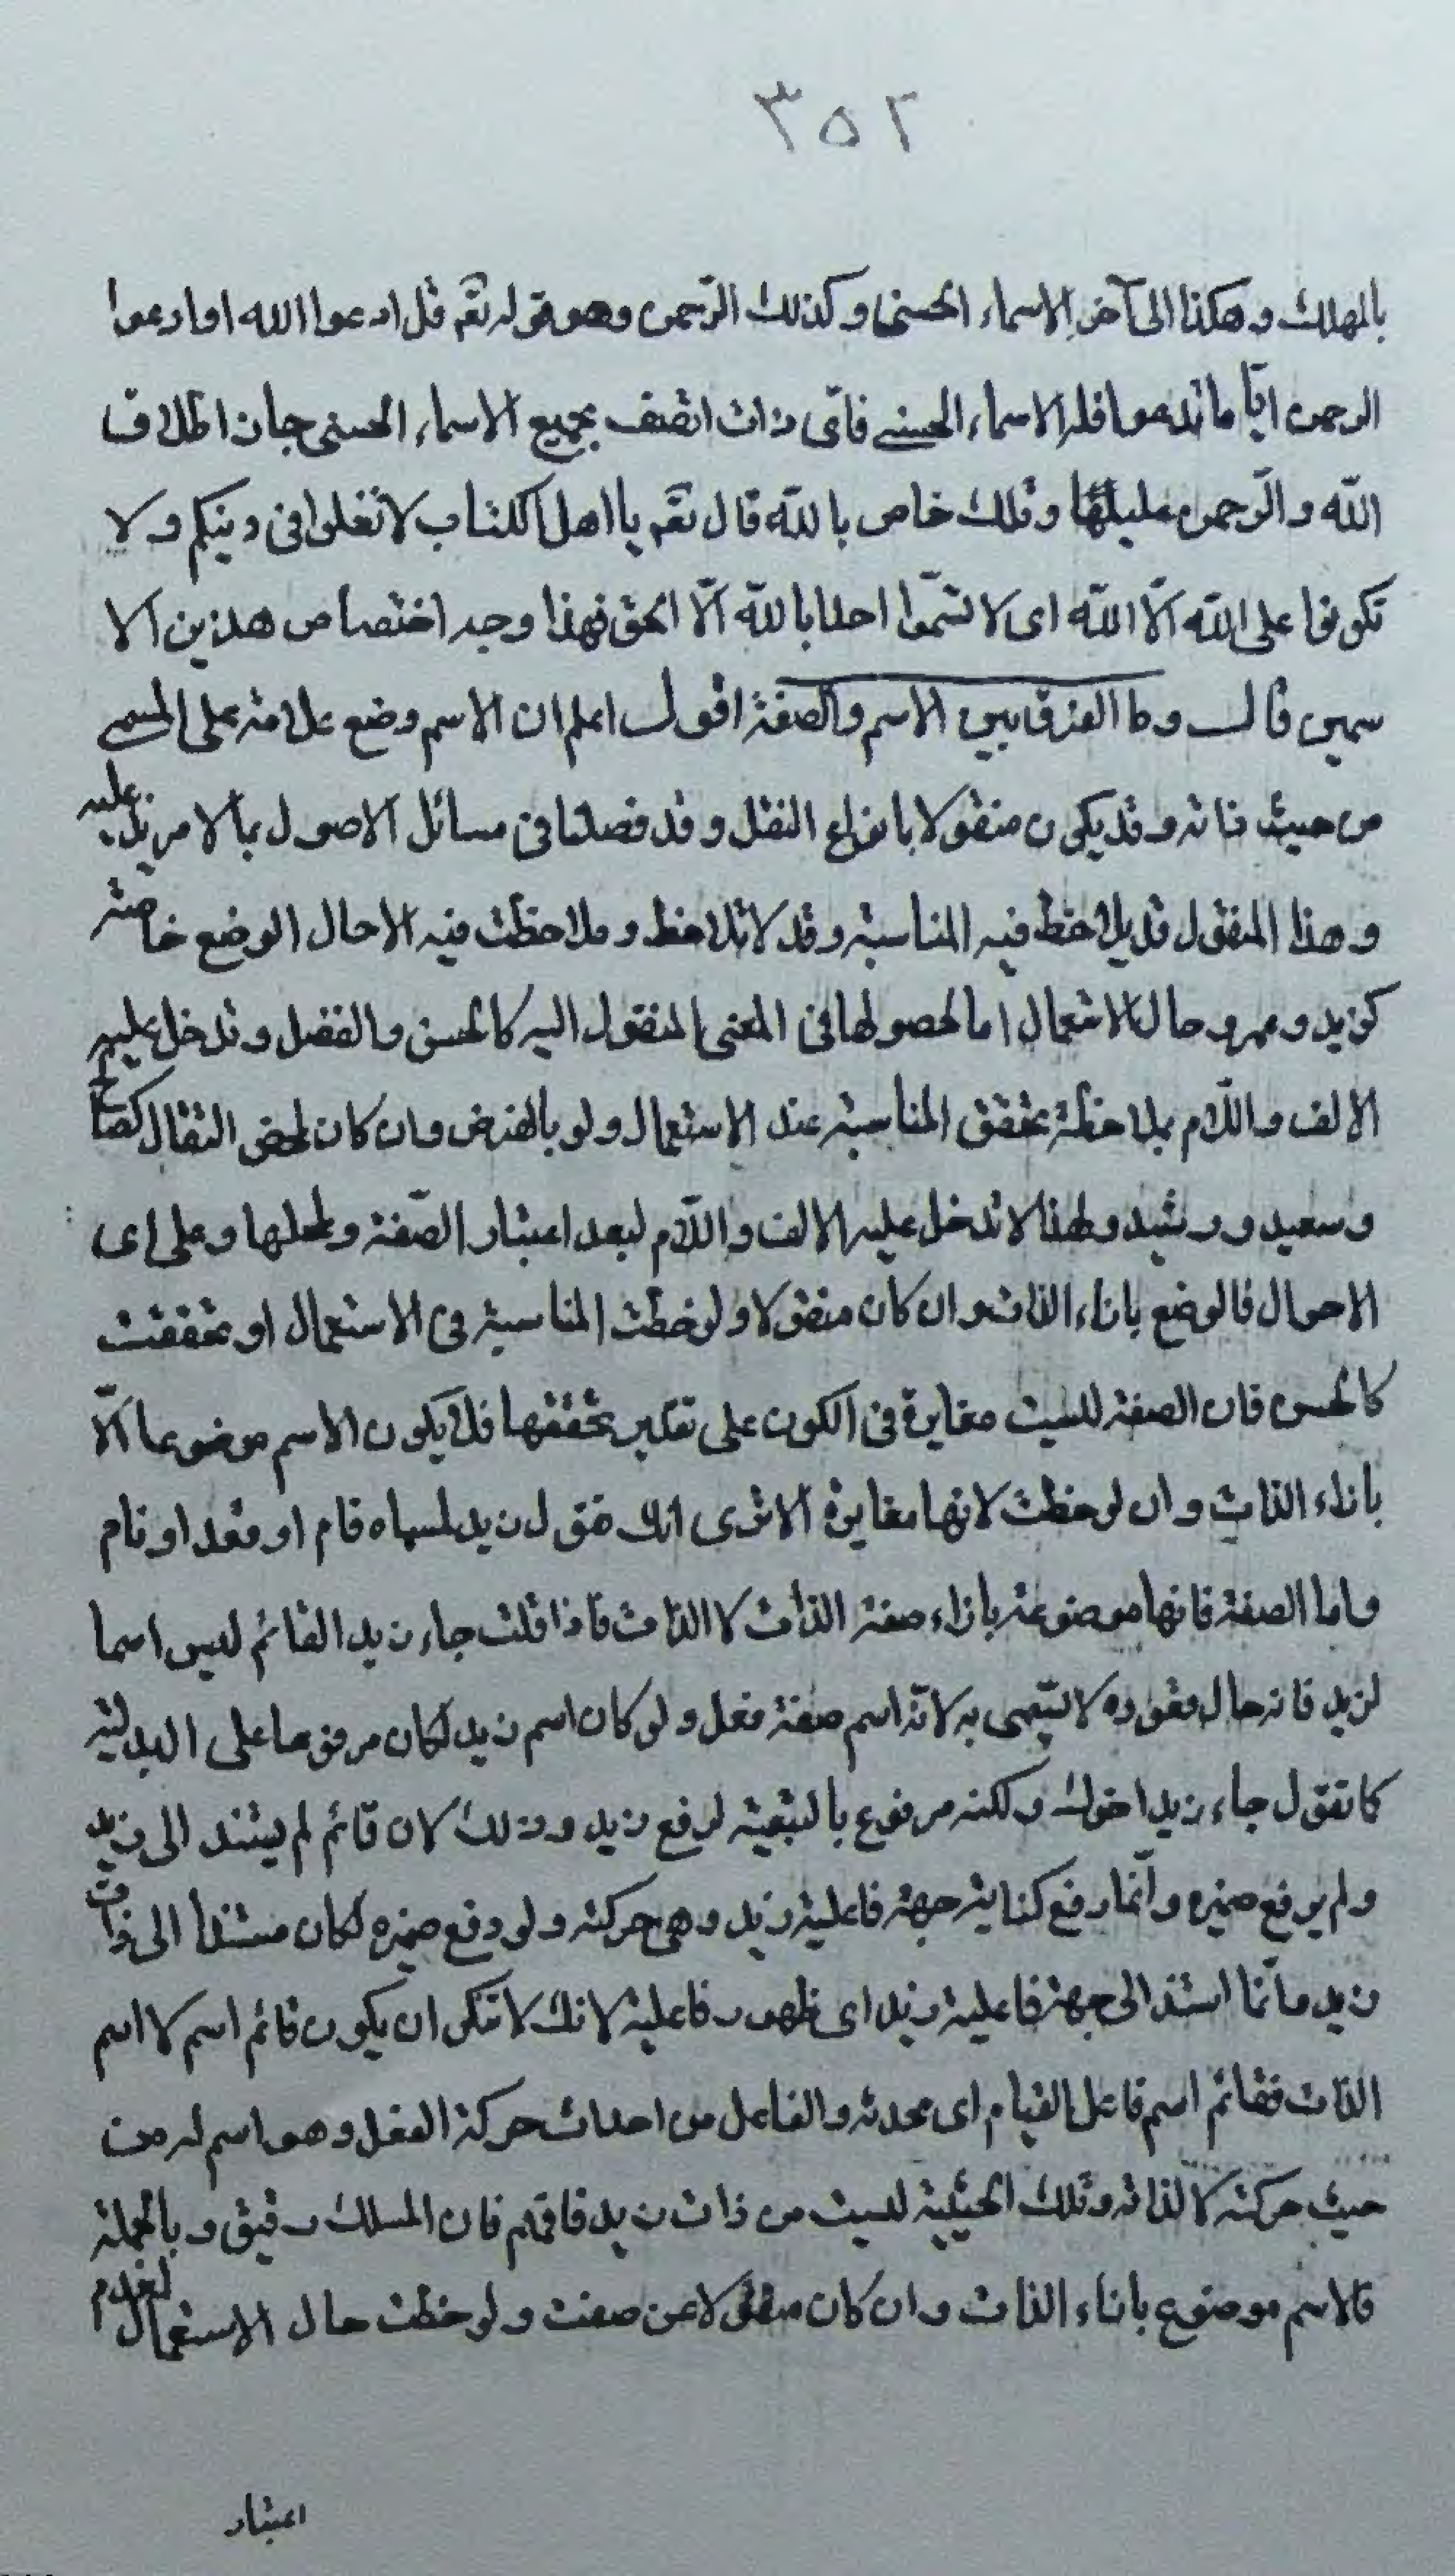 ٣٥٢
بالمهلك وهكذا الى آخر الاسماء الحسنى وكذلك الرّحمن وهو قوله تعم قل ادعوا الله او ادعوا
الرحمن ايّا ما تدعوا فله الاسماء الحسنى فاىّ ذات اتصف بجميع الاسماء الحسنى جاز اطلاق
اللّه والرّحمن عليها وتلك خاص باللّه قال تعم يا اهل الكتاب لا تغلوا فى دينكم ولا
تكونوا على اللّه الّا اللّه اى لا تسمّوا احدا باللّه الّا الحق فهذا وجه اختصاص هذين الا
سمين قال وما الفرق بين الاسم والصفة اقول اعلم ان الاسم وضع علامة على المسمى
من حيث ذاته وقد يكون منقولا بانواع النقل وقد فصلنا فى مسائل الاصول بما لا مزيد عليه
وهذا المنقول قد يلاحظ فيه المناسبة وقد لا تلاحظ وملاحظت فيه الا حال الوضع خاصة
كزيد وعمرو حال الاستعمال اما لحصولها فى المعنى المنقول اليه كالحسن والفضل وتدخل عليهم
الالف واللّام بملاحظة تحقق المناسبة عند الاستعمال ولو بالفرض وان كان لمحض التفال كصالح
وسعيد ورشيد ولهذا لا تدخل عليه الالف واللّام لبعد اعتبار الصّفة ولمحلها وعلى اى
الاحوال فالوضع بازاء الذات وان كان منقولا ولوحظت المناسبة فى الاستعمال او تحققت
كالحسن فان الصفة ليست مغايرة فى الكون على تقدير تحققها فلا يكون الاسم موضوعا الّا
بازاء الذات وان لوحظت لانها مغايرة الا ترى انك تقول زيد لسماه قام او قعد او نام
واما الصفة فانها موضوعة بازاء صفة الذات لا الذات فاذا قلت جاء زيد القائم ليس اسما
لزيد فانه حال قعوده لا يسمى به لانّه اسم صفة فعل ولو كان اسم زيد لكان مرفوعا على البدلية
كما تقول جاء زيد اخوك ولكنه مرفوع بالتبعية لرفع زيد وذلك لان قائم لم يستند الى زيد
ولم يرفع ضميره وانّما رفع كناية جهة فاعلية زيد وهى حركته ولو رفع ضميره لكان مستندا الى ذات
زيد وانّما استند الى جهة فاعلية زيد اى ظهوره فاعلية لانك لا تنكر ان يكون قائم اسم لا اسم
الذات فقائم اسم فاعل القيام اى محدثه والفاعل من احداث حركة الفعل وهو اسم له من
حيث حركته لا لذاته وتلك الحيثية ليست من ذات زيد فافهم فان المسلك دقيق وبالجملة
فالاسم موضوع بازاء الذات وان كان منقولا عن صفت ولوحظت حال الاستعمال لعدم
اعتبار